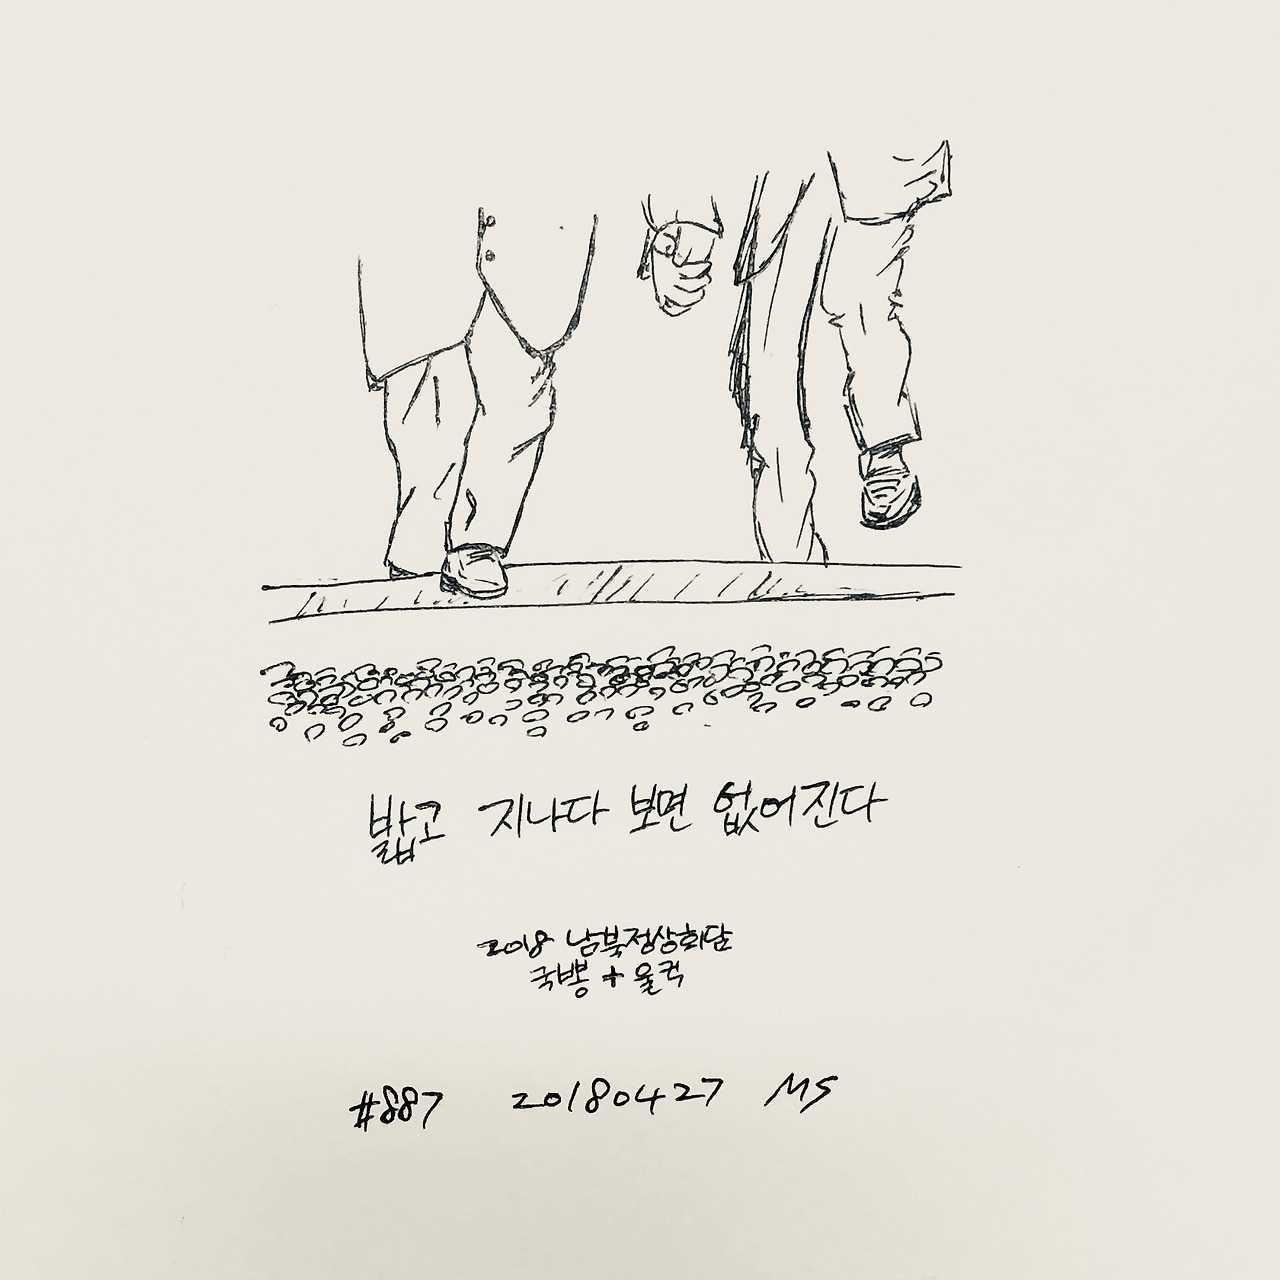 밟고 지나다 보면 없어진다
2018 남북정상회담
국뽕 + 울컥
#887 20180427 MS